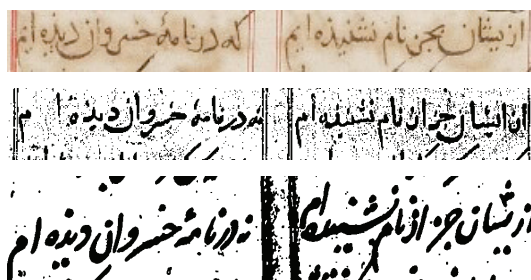 ازیشان بجز نام نشنیده‌ایم که در نامهٔ خسروان دیده‌ایم
از ایشان جز از نام نشنیده‌ام نه در نامهٔ خسروان دیده‌ام
ازیشان جز از نام نشنیده‌ام نه در نامهٔ خسروان دیده‌ام